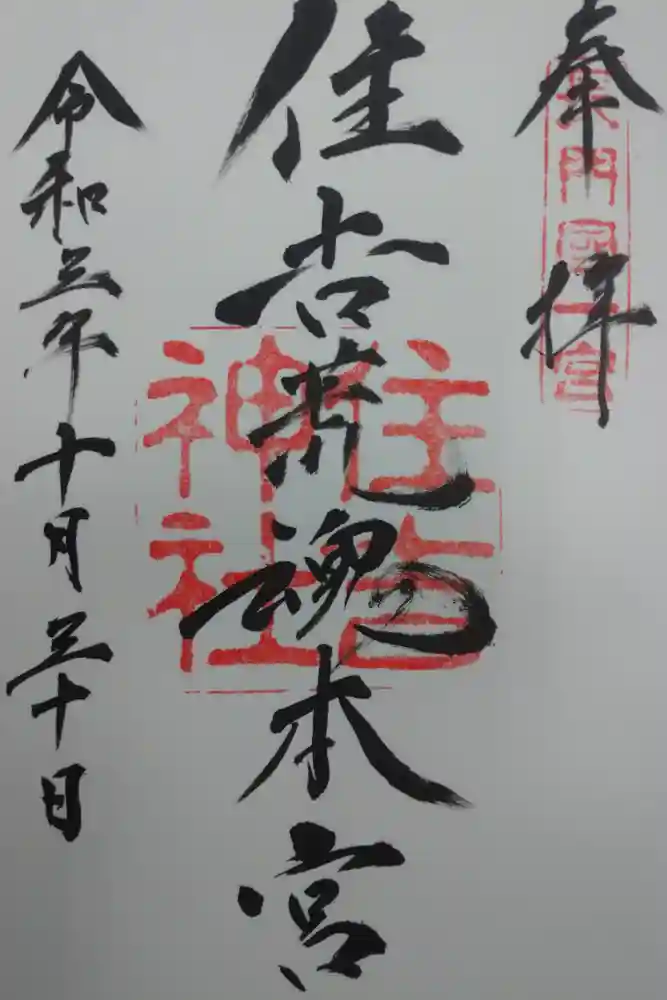 奉拝
長門国一宮
住吉荒魂本宮
住吉
神社
令和三年十月三十日